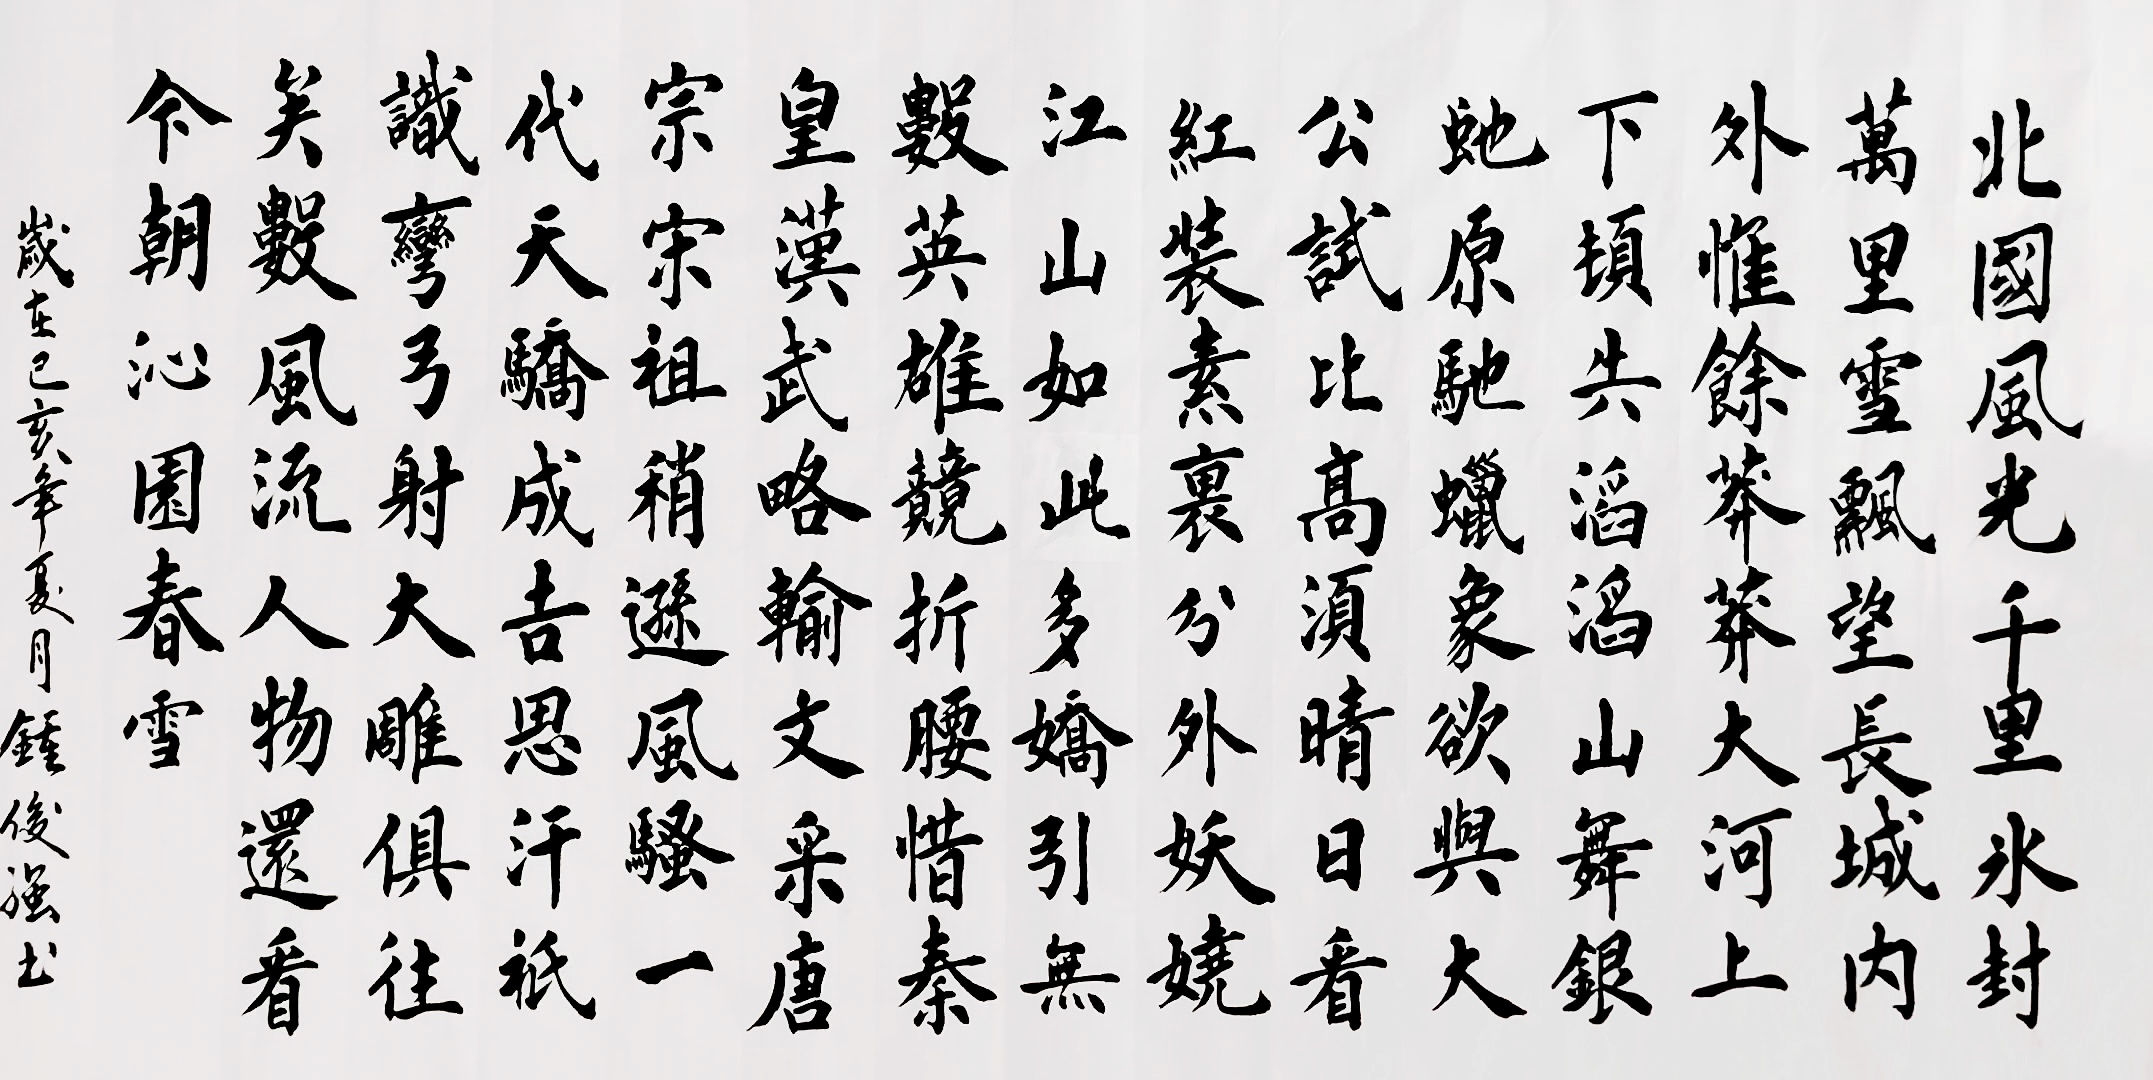 北國風光千里氷封
萬里雪飄望長城内
外惟餘莽莽大河上
下頓失滔滔山舞銀
虵原馳蠟象欲與大
公試比高須晴日看
紅裝素裹分外妖嬈
江山如此多嬌引無
數英雄競折腰惜秦
皇漢武略輸文采唐
宗宋祖稍遜風騷一
代天驕成吉思汗祇
識彎弓射大雕俱往
矣數風流人物還看
今朝沁園春雪
歲在己亥年夏月鍾俊强书